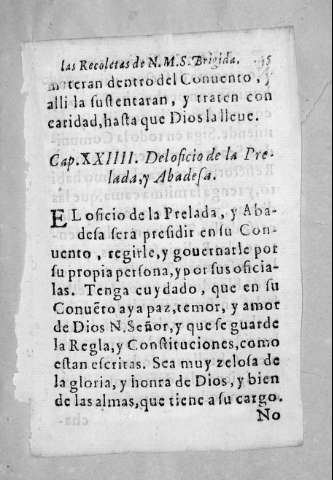 las Recoletas de N.M.S. Brigida. 15
meteran dentro del Conuento, y
alli la sustentaran, y traten con
caridad, hasta que Dios la lleue.
Cap. XXIIII. Del oficio de la Pre-
lada, y Abadesa.
EL oficio de la Prelada, y Aba-
desa sera presidir en su Con-
uento, regirle, y gouernarle por
su propia persona, y por sus oficia-
las. Tenga cuydado, que en su
Conuẽto aya paz, temor, y amor
de Dios N. Señor, y que se guarde
la Regla, y Constituciones, como
estan escritas. Sea muy zelosa de
la gloria, y honra de Dios, y bien
de las almas, que tiene a su cargo.
No